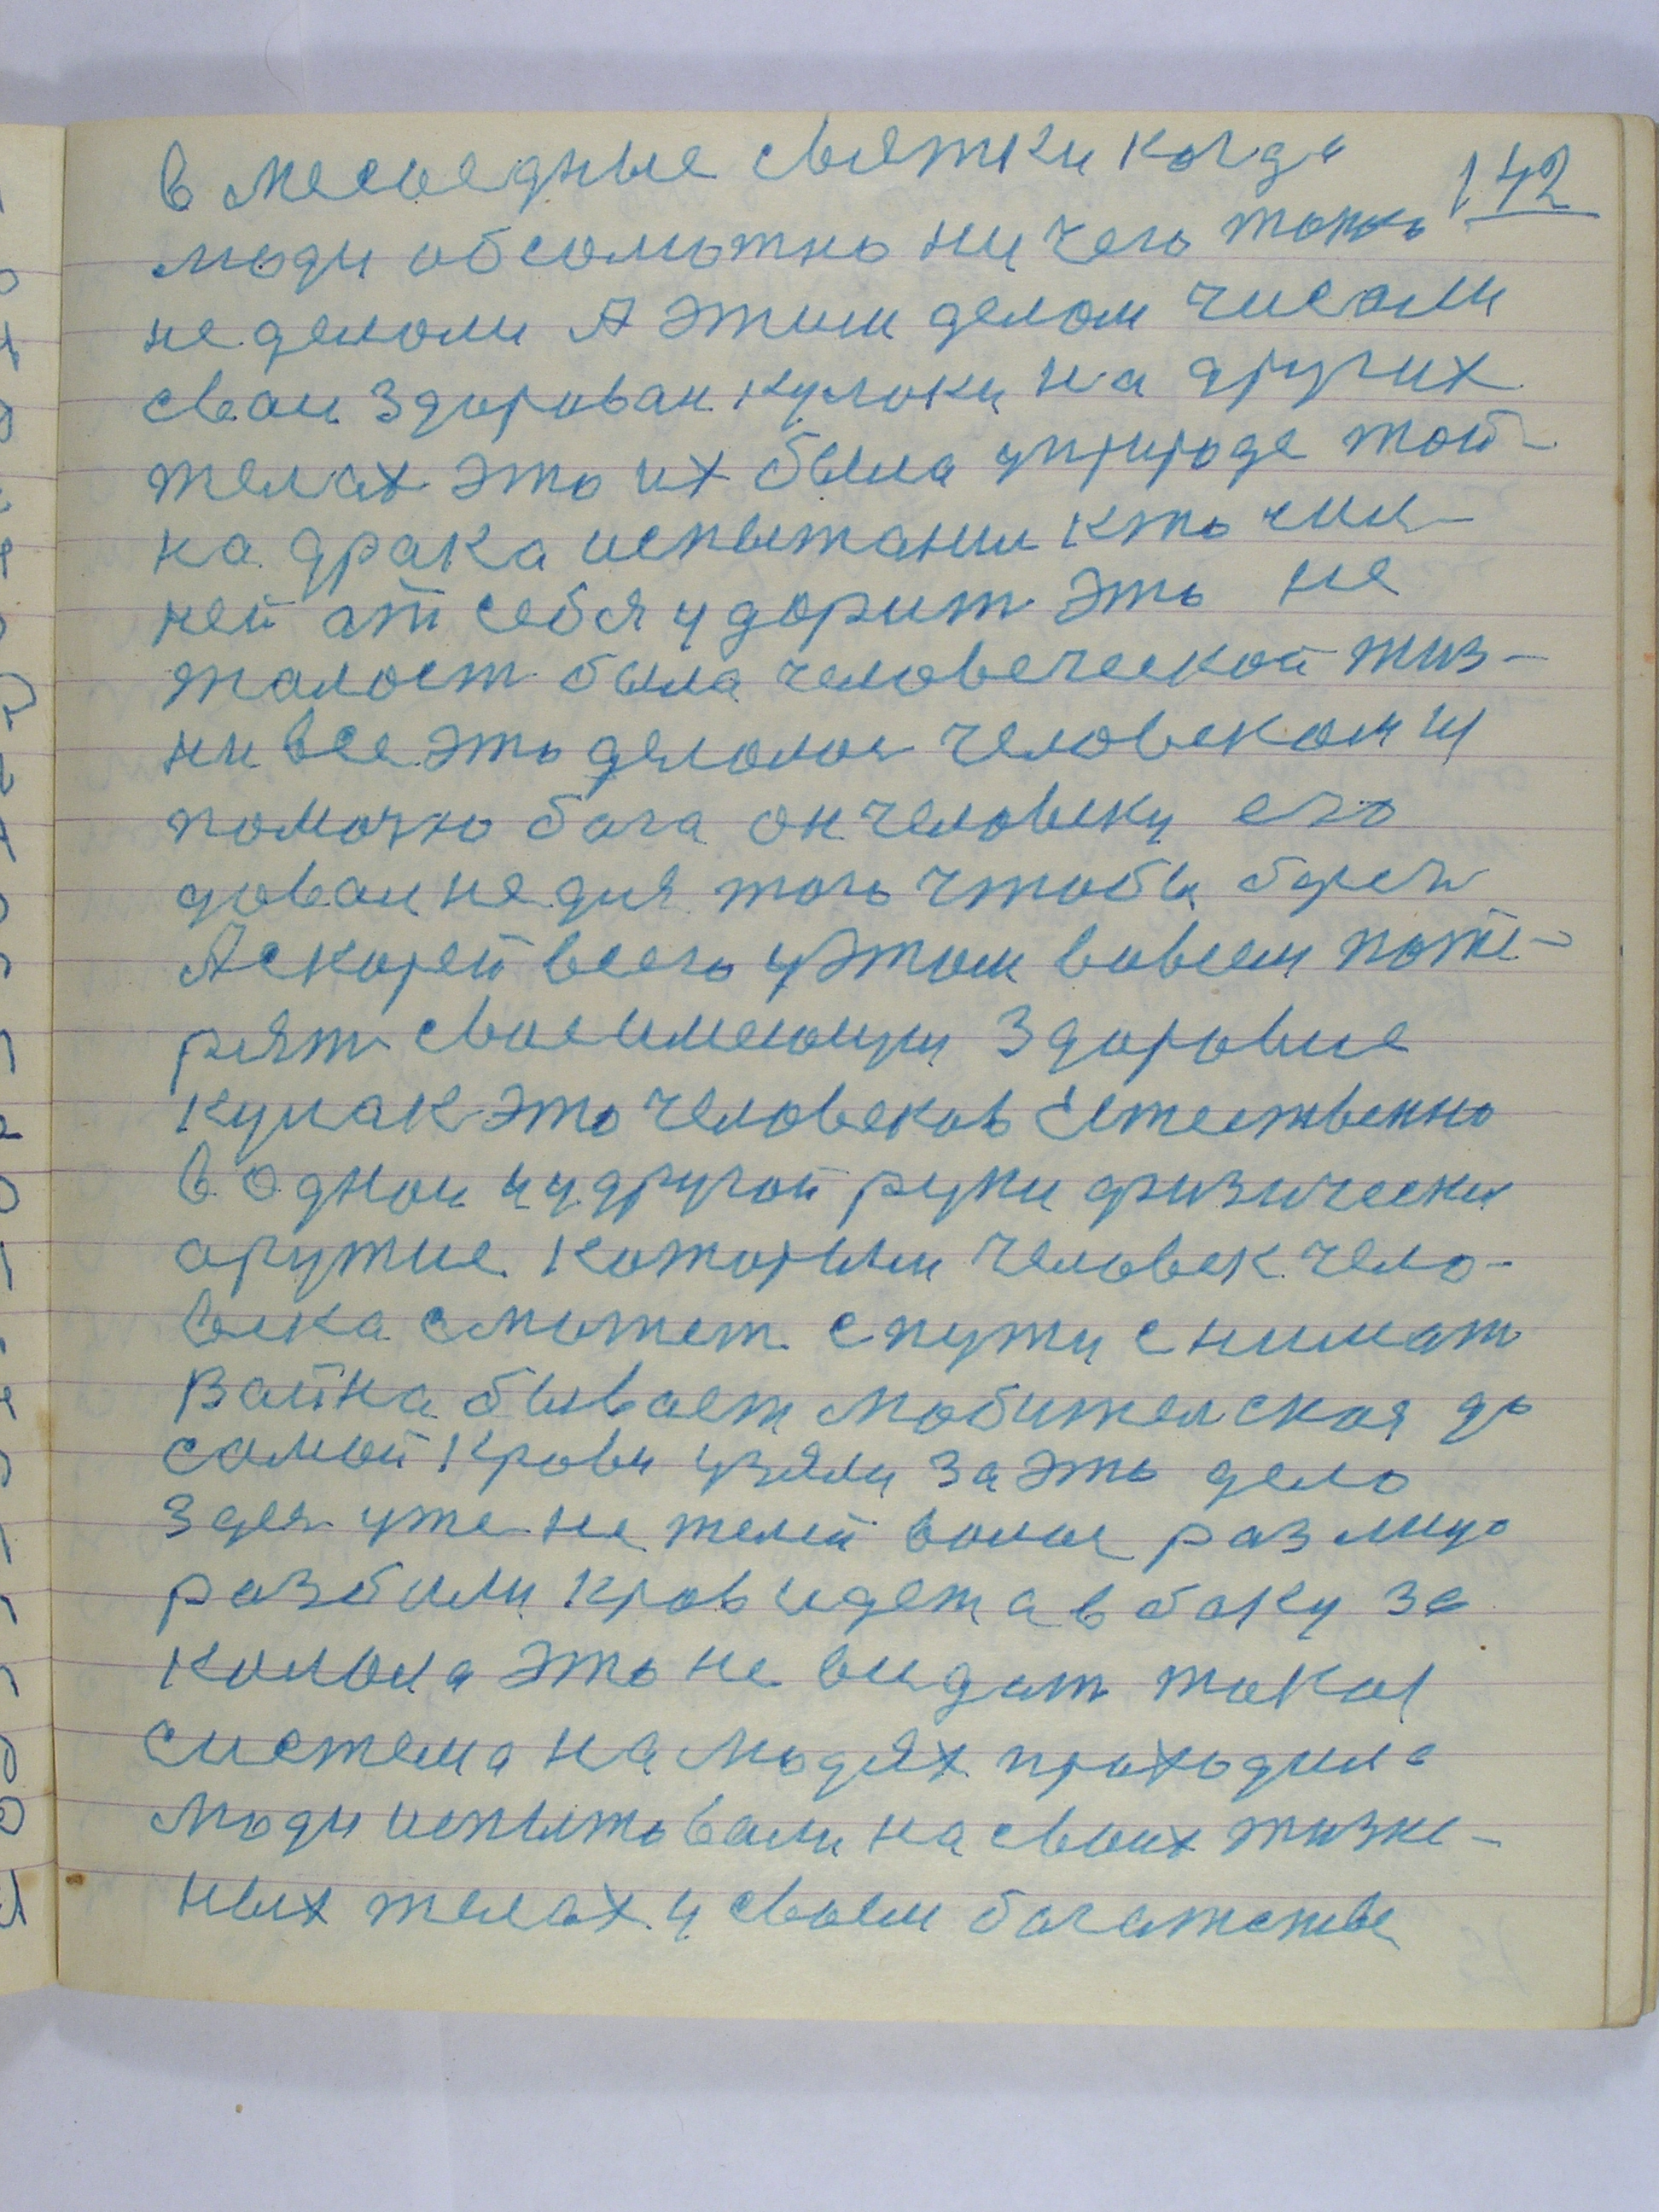 142
в месоедные святки когда
люди обсолютно ни чего такого
не делоли А этим делом чисали
сваи здороваи кулоки на других
телах это их была уприроде той-
на драка испытании кто сили-
ней от себя удорит это не
жалост была человеческой жиз-
ни все это делолос человеком и
помочю бога он человеку его
довал не для того чтобы береч
А скорей всего уэтом вовсем поте-
рят свое имеющую здоровие
кулак это человеков Естественно
в одной иудругой руки физически
аружие которым человек чело-
века сможет спути снимат
Вайна бывает любителская до
самой крови узяли за это дело
здес уже не желей волос раз лицо
разбили кров идет а в боку за
колола это не видат такая
система на людях проходила
люди испытовали на своих жизне-
ных телах у своем богатстве